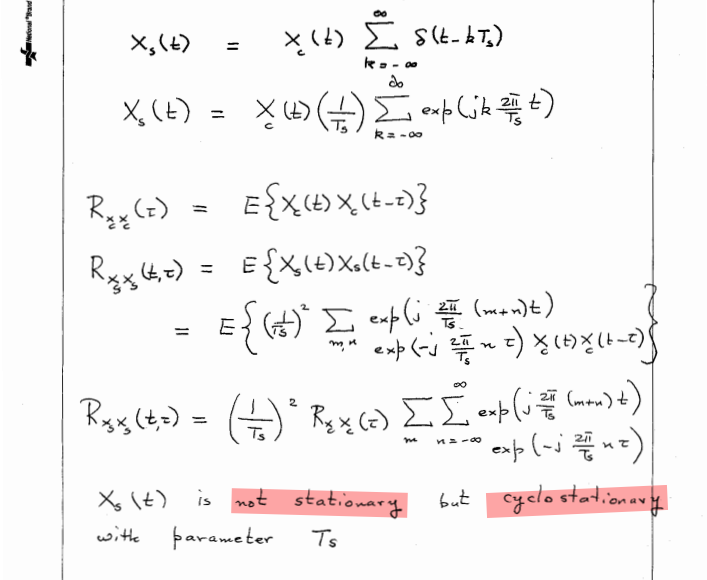 National® Brand
X_s(t) = X_c(t) ∑_{k=-∞}^{∞} δ(t-kT_s)
X_s(t) = X_c(t) (1/T_s) ∑_{k=-∞}^{∞} exp(jk 2π/T_s t)
R_{x_c x_c}(τ) = E{X_c(t) X_c(t-τ)}
R_{x_s x_s}(t,τ) = E{X_s(t) X_s(t-τ)}
= E{(1/T_s)^2 ∑_{m,n} exp(j 2π/T_s (m+n)t)
exp(-j 2π/T_s n τ) X_c(t) X_c(t-τ)}
R_{x_s x_s}(t,τ) = (1/T_s)^2 R_{x_c x_c}(τ) ∑_m ∑_{n=-∞}^{∞} exp(j 2π/T_s (m+n)t)
exp(-j 2π/T_s n τ)
X_s(t) is not stationary but cyclostationary
with parameter Ts